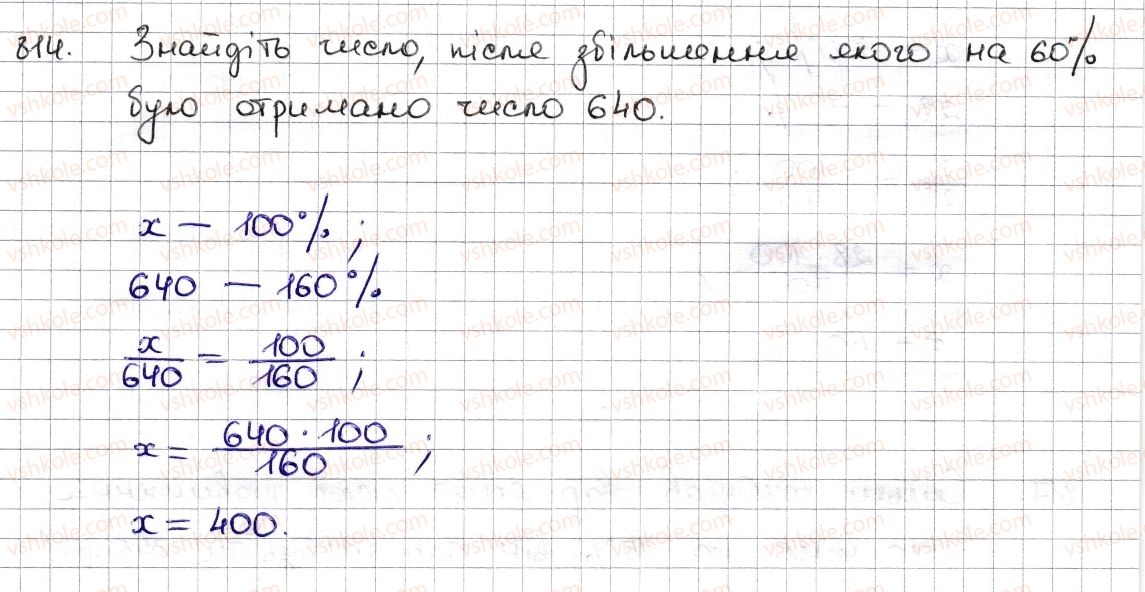 314. Знайдіть число, після збільшення якого на 60%
було отримано число 640.
x — 100%;
640 — 160%
x/640 = 100/160;
x = 640·100/160;
x = 400.